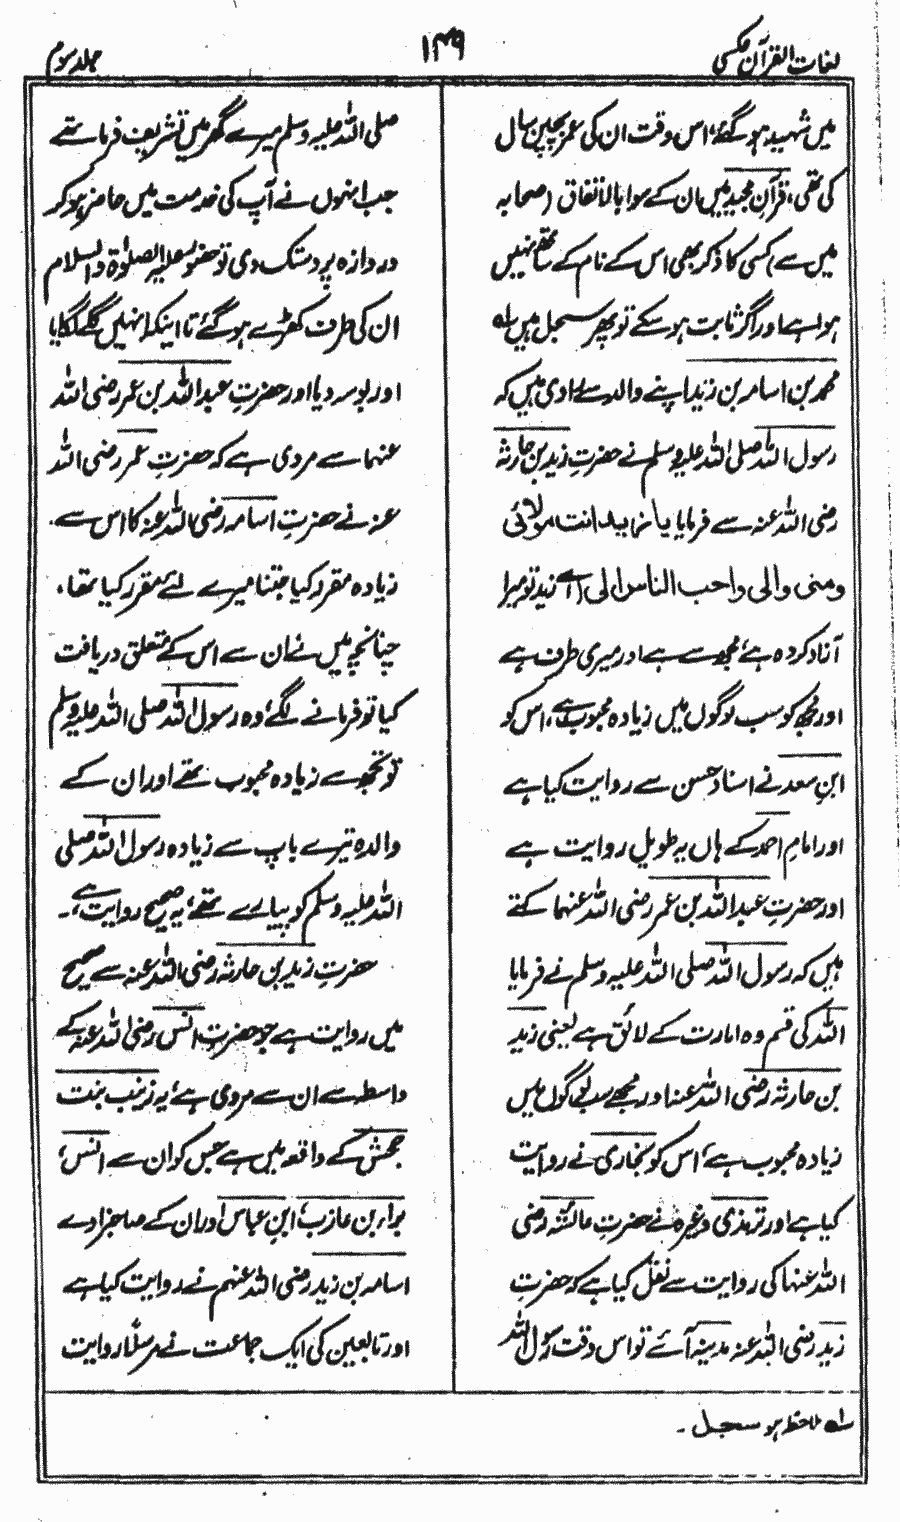 لغات القرآن عکسی
۱۴۹
جلد سوم
میں شہید ہو گئے، اس وقت ان کی عمر پچپن سال
کی تھی، قرآن مجید میں ان کے سوا بالاتفاق (صحابہ
میں سے) کسی کا ذکر بھی اس کے نام کے ساتھ نہیں
ہوا ہے اور اگر ثابت ہو سکے تو پھر سجل ہیں لہ
محمد بن اسامہ بن زید اپنے والد سے راوی ہیں کہ
رسول اللہ صلی اللہ علیہ وسلم نے حضرتِ زید بن حارثہ
رضی اللہ عنہ سے فرمایا یا زید انت مولائی
ومنی والی واحب الناس الی (اے زید تو میرا
آزاد کردہ ہے، مجھ سے ہے اور میری طرف ہے
اور مجھ کو سب لوگوں میں زیادہ محبوب ہے، اس کو
ابنِ سعد نے اسنادِ حسن سے روایت کیا ہے
اور امامِ احمد کے ہاں یہ طویل روایت ہے
اور حضرتِ عبد اللہ بن عمر رضی اللہ عنہما کہتے
ہیں کہ رسول اللہ صلی اللہ علیہ وسلم نے فرمایا
اللہ کی قسم وہ امارت کے لائق ہے یعنی زید
بن حارثہ رضی اللہ عنہ اور مجھے سب لوگوں میں
زیادہ محبوب ہے، اس کو بخاری نے روایت
کیا ہے اور ترمذی وغیرہ نے حضرتِ عائشہ رضی
اللہ عنہا کی روایت سے نقل کیا ہے کہ حضرتِ
زید رضی اللہ عنہ مدینہ آئے تو اس وقت رسول اللہ
صلی اللہ علیہ وسلم میرے گھر میں تشریف فرما تھے
جب انہوں نے آپ کی خدمت میں حاضر ہو کر
دروازہ پر دستک دی تو حضور علیہ الصلوٰۃ والسلام
ان کی طرف کھڑے ہو گئے تا اینکہ انہیں گلے لگایا
اور بوسہ دیا اور حضرتِ عبد اللہ بن عمر رضی اللہ
عنہما سے مروی ہے کہ حضرتِ عمر رضی اللہ
عنہ نے حضرتِ اسامہ رضی اللہ عنہ کا اس سے
زیادہ مقرر کیا جتنا میرے لئے مقرر کیا تھا،
چنانچہ میں نے ان سے اس کے متعلق دریافت
کیا تو فرمانے لگے، وہ رسول اللہ صلی اللہ علیہ وسلم
کو تجھ سے زیادہ محبوب تھے اور ان کے
والد تیرے باپ سے زیادہ رسول اللہ صلی
اللہ علیہ وسلم کو پیارے تھے، یہ صحیح روایت ہے،۔
حضرتِ زید بن حارثہ رضی اللہ عنہ سے صحیح
میں روایت ہے جو حضرتِ انس رضی اللہ عنہ کے
واسطہ سے ان سے مروی ہے، یہ زینب بنت
جحش کے واقعہ میں ہے جس کو ان سے انس،
براء بن عازب، ابنِ عباس اور ان کے صاحبزادے
اسامہ بن زید رضی اللہ عنہم نے روایت کیا ہے
اور تابعین کی ایک جماعت نے مرسلًا روایت
لہ ملاحظہ ہو سجل۔